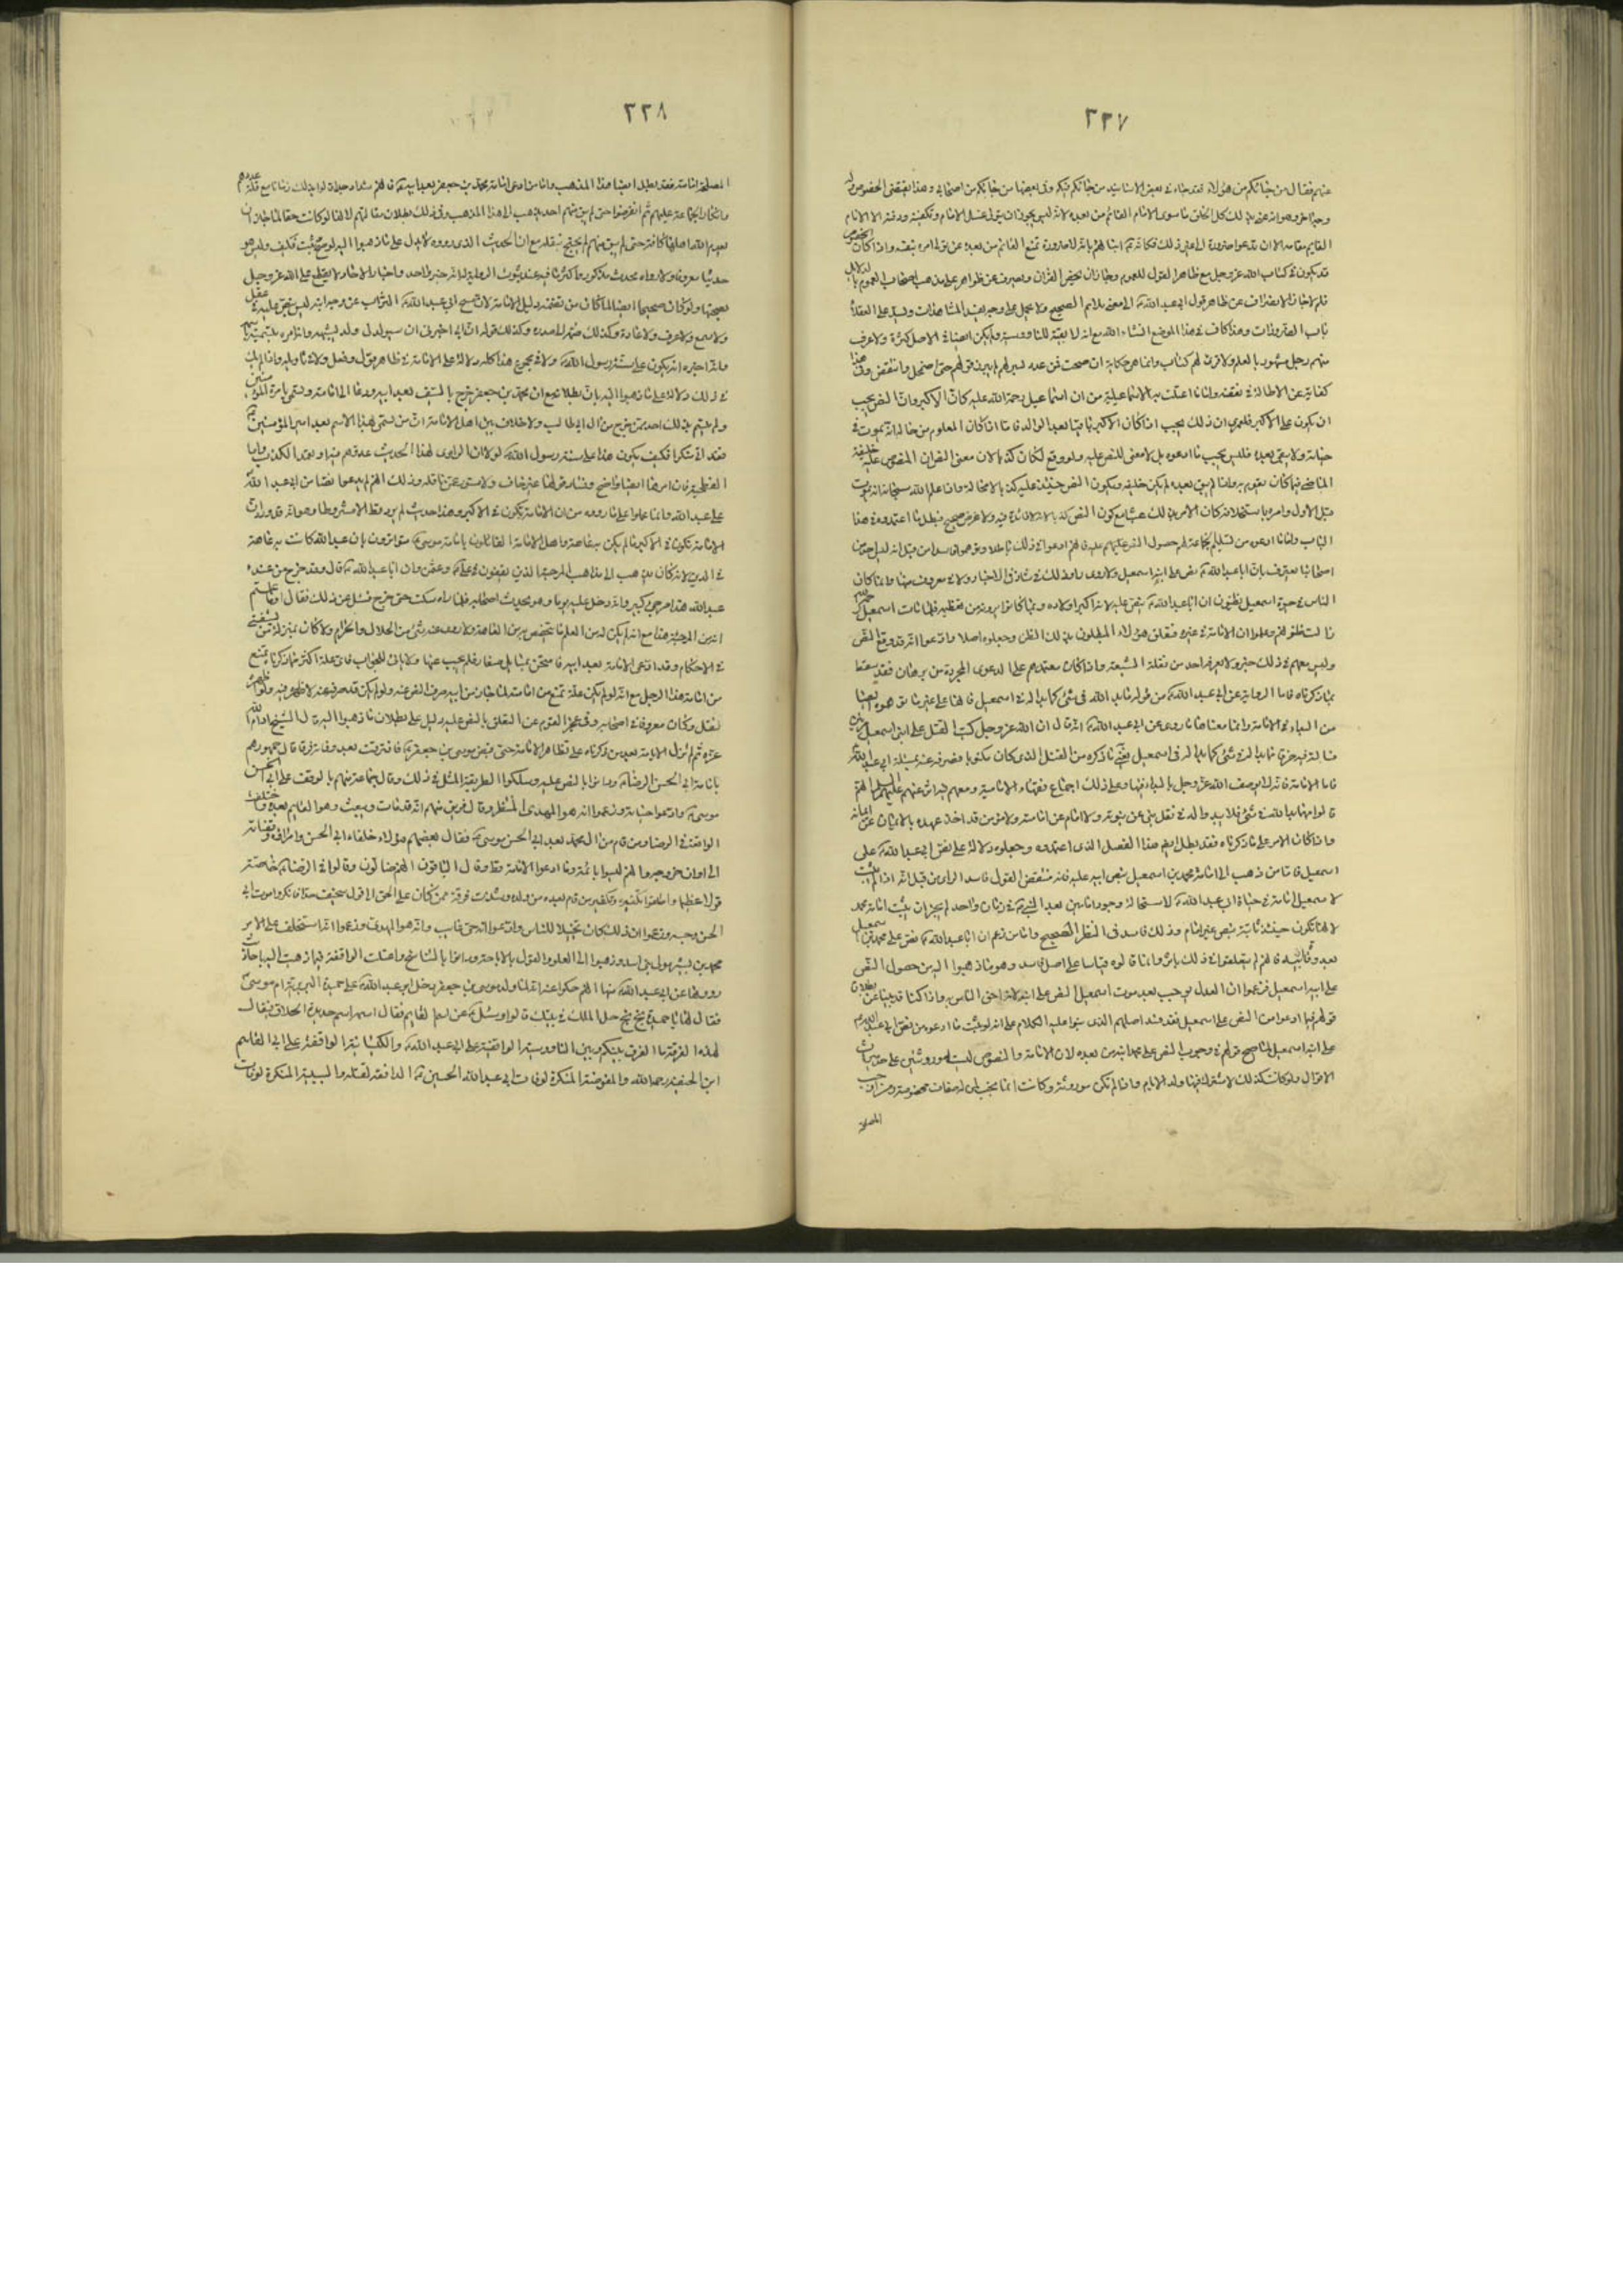 ٣٣٧
وحباطر وهو انه عنى بذلك كل الخلق ما سوى الامام القائم من بعده لانه ليس يجوز ان يتولى غسل الامام وتكفينه ودفنه الا الامام
القايم مقامه الا ان تدعو ضرورة الى غير ذلك فكانه انبأهم بانه لا ضرورة تمنع القائم من بعده عن تولى امره بنفسه واذا كان الخصوص
قد يكون في كتاب الله عز وجل مع ظاهر القول للعموم وجاز ان يخص القرآن ويصرف عن ظواهره على مذهب اصحاب العموم بالدلائل
فلم لا جاز الانصراف عن ظاهر قول ابى عبد الله الى معنى يلايم الصحيح ولا يحمل على وجه يفسد المشاهدات ويسد على العقلاء
باب الضرورات وهذا كاف في هذا الموضع انشاء الله مع انه لا بقية للناووسية ولم يكن ايضا في الاصل كثرة ولا عرف
منهم رجل مشهور بالعلم ولا قرئ لهم كتاب وانما هي حكاية ان صحت فعن عدد يسير لم يبرز قولهم حتى اضمحل وانتقض وفى هذا
كفاية عن الاطالة في نقضه واما ما اعتلت به الاسماعيلية من ان اسماعيل رحمة الله عليه كان الاكبر وان النص يجب
ان يكون على الاكبر فلعمرى ان ذلك يجب اذا كان الاكبر باقيا بعد الوالد فاما اذا كان المعلوم من حاله انه يموت في
حياته ولا يبقى بعده فليس يجب ما ادعوه بل لا معنى للنص عليه ولو وقع لكان كذبا لان معنى النص ان المنصوص عليه خليفة
الماضى فيما كان يقوم به واذا لم يبق بعده لم يكن خليفة ويكون النص حينئذ عليه كذبا لا محالة واذا علم الله سبحانه انه يموت
قبل الاول وامره باستخلافه كان الامر بذلك عبثا مع كون النص كذبا لانه لا فائدة فيه ولا غرض صحيح فبطل ما اعتمدوه في هذا
الباب واما ما ادعوه من تسليم الجماعة لهم حصول النص عليه فانهم ادعوا في ذلك باطلا وتوهموا فاسدا من قبل انه ليس احد من
اصحابنا يعترف بان ابا عبد الله نص على ابنه اسمعيل ولا روى راو ذلك في شاذ من الاخبار ولا في معروف منها وانما كان
الناس في حيوة اسمعيل يظنون ان ابا عبد الله ينص عليه لانه اكبر اولاده وبما كانوا يرونه من تعظيمه فلما مات اسمعيل رحمه الله
زالت ظنونهم وعلموا ان الامامة في غيره فتعلق هؤلاء المبطلون بذلك الظن وجعلوه اصلا وادعوا انه قد وقع النص
وليس معهم في ذلك خبر ولا اثر يعرفه احد من نقلة الشيعة واذا كان معتمدهم على الدعوى المجردة من برهان فقد سقط
بما ذكرناه فاما الرواية عن ابى عبد الله من قوله ما بدا لله في شئ كما بدا له في اسمعيل فانها على غير ما توهموه ايضا
من البداء في الامامة وانما معناها ما روى عن ابى عبد الله انه قال ان الله عز وجل كتب القتل على ابنى اسمعيل مرتين
فسالته فيه فرقا فما بدا له في شئ كما بدا له في اسمعيل يعنى ما ذكره من القتل الذى كان مكتوبا فصرفه عنه بمسئلة ابى عبد الله
فاما الامامة فانه لا يوصف الله عز وجل بالبداء فيها وعلى ذلك اجماع فقهاء الامامية ومعهم فيه اثر عنهم عليهم السلام انهم
قالوا مهما بدا لله في شئ فلا يبدو له في نقل نبى عن نبوته ولا امام عن امامته ولا مؤمن قد اخذ عهده بالايمان عن ايمانه
واذا كان الامر على ما ذكرناه فقد بطل ايضا هذا الفصل الذى اعتمدوه وجعلوه دلالة على نص ابى عبد الله على
اسمعيل فاما من ذهب الى امامة محمد بن اسمعيل بنص ابيه عليه فانه منتقض القول فاسد الراى من قبل انه اذا لم يثبت
لاسمعيل امامة في حياة ابى عبد الله لاستحالة وجود امامين بعد النبى في زمان واحد لم يجز ان يثبت امامة محمد
لانها تكون حينئذ ثابتة بنص غير امام وذلك فاسد في النظر الصحيح واما من زعم ان ابا عبد الله نص على محمد بن اسمعيل
بعد وفاة ابيه فانهم لم يتعلقوا في ذلك باثر وانما قالوه قياسا على اصل فاسد وهو ما ذهبوا اليه من حصول النص
على ابيه اسمعيل فزعموا ان العدل يوجب بعد موت اسمعيل النص على ابنه لانه احق الناس به واذا كنا قد بينا عن بطلان
قولهم فيما ادعوه من النص على اسمعيل فقد فسد اصلهم الذى بنوا عليه الكلام على انه لو ثبت ما ادعوه من نص ابى عبد الله
على ابنه اسمعيل لما صح قولهم في وجوب النص على محمد ابنه من بعده لان الامامة والنصوص ليستا موروثتين على حد ميراث
الاموال ولو كانت كذلك لاشترك فيها ولد الامام واذا لم تكن موروثة وكانت انما تجب لمن له صفات مخصوصة ومن اوجبت
المصلحة
٣٣٨
المصلحة امامته فقد بطل ايضا هذا المذهب واما من ادعى امامة محمد بن جعفر بعد ابيه فانهم شذاذ جدا قالوا بذلك زمانا مع قلة عددهم
وانكار الجماعة عليهم ثم انقرضوا حتى لم يبق منهم احد يذهب الى هذا المذهب وفى ذلك بطلان مقالتهم لانها لو كانت حقا لما جاز ان
يعدم الله اهلها كافة حتى لم يبق منهم من يحتج بنقله مع ان الحديث الذى رووه لا يدل على ما ذهبوا اليه لو صح وثبت فكيف وليس هو
حديثا معروفا ولا رواه محدث مذكور واكثر ما فيه عند ثبوت الرواية له انه خبر واحد واخبار الاحاد لا يقطع على الله عز وجل
بصحتها ولو كان صحيحا ايضا لما كان من تضمنه دليل الامامة لان مسح ابى عبد الله التراب عن وجه ابنه ليس بنص عليه في عقل
ولا سمع ولا عرف ولا عادة وكذلك ضمه الى صدره وكذلك قوله ان ابى اخبرنى ان سيولد لى ولد يشبهه وانه امره بتسميته
وانه اخبره انه يكون على سنة رسول الله ولا في مجموع هذا كله دلالة على الامامة في ظاهر قول وفعل ولا في تاويله واذا لم يكن
في ذلك دلالة على ما ذهبوا اليه بان بطلانه مع ان محمد بن جعفر خرج بالسيف بعد ابيه ودعا الى امامته وتسمى بامرة المؤمنين
ولم يتسم بذلك احد ممن خرج من آل ابى طالب ولا خلاف بين اهل الامامة ان من تسمى بهذا الاسم بعد امير المؤمنين
فقد اتى منكرا فكيف يكون هذا على سنة رسول الله لولا ان الراوى لهذا الحديث قد وهم فيه او تعمد الكذب واما
الفطحية فان امرها ايضا واضح وفساد قولها غير خاف ولا مستور عمن تامله وذلك انهم لم يدعوا نصا من ابى عبد الله
على عبد الله وانما عملوا على ما رووه من ان الامامة تكون في الاكبر وهذا حديث لم يرو قط الا مشروطا وهو انه قد ورد ان
الامامة تكون في الاكبر ما لم يكن به عاهة واهل الامامة القائلون بامامة موسى متواترون بان عبد الله كانت به عاهة
في الدين لانه كان يذهب الى مذاهب المرجئة الذين يقعون في على وعثمن وان ابا عبد الله قال وقد خرج من عنده
عبد الله هذا مرجئ كبير وانه دخل عليه يوما وهو يحدث اصحابه فلما راه سكت حتى خرج فسئل عن ذلك فقال اوما علمتم
انه من المرجئة هذا مع انه لم يكن له من العلم ما يتخصص به من العامة ولا روى عنه شئ من الحلال والحرام ولا كان بمنزلة من يستفتى
في الاحكام وقد ادعى الامامة بعد ابيه فامتحن بمسائل صغار فلم يجب عنها ولا تاتى للجواب فاى علة اكثر مما ذكرنا تمنع
من امامة هذا الرجل مع انه لو لم يكن علة تمنع من امامته لما جاز من ابيه صرف النص عنه ولو لم يكن قد صرفه عنه لاظهره فيه ولو اظهره
لنقل وكان معروفا في اصحابه وفى عجز القوم عن التعلق بالنص عليه دليل على بطلان ما ذهبوا اليه قال الشيخ ادام الله
عزه ثم لم تزل الامامية بعد من ذكرناه على نظام الامامة حتى قبض موسى بن جعفر فافترقت بعد وفاته فرقا قال جمهورهم
بامامة ابى الحسن الرضا ودانوا بالنص عليه وسلكوا الطريقة المثلى في ذلك وقال جماعة منهم بالوقف على ابى الحسن
موسى وادعوا حياته وزعموا انه هو المهدى المنتظر وقال فريق منهم انه قد مات وسيبعث وهو القايم بعده واختلفت
الواقفة في الرضا ومن قام من آل محمد بعد ابى الحسن موسى فقال بعضهم هؤلاء خلفاء ابى الحسن وامراؤه وقضاته
الى اوان خروجه وانهم ليسوا بائمة وما ادعوا الامامة قط وقال الباقون انهم ضالون وقالوا في الرضا خاصة
قولا عظيما واطلقوا تكفيره وتكفير من قام بعده من ولده وشذت فرقة ممن كان على الحق الى قول سخيف جدا فانكروا موت ابى
الحسن وحبسه وزعموا ان ذلك كان تخيلا للناس وادعوا انه حى غايب وانه هو المهدى وزعموا انه استخلف على الامر
محمد بن بشر مولى بنى اسد وذهبوا الى الغلو والقول بالاباحة ودانوا بالتناسخ واعتلت الواقفة فيما ذهبت اليه باحاديث
رووها عن ابى عبد الله منها انهم حكوا عنه انه لما ولد موسى بن جعفر دخل ابو عبد الله على حميدة البربرية ام موسى
فقال لها يا حميدة بخ بخ حل الملك في بيتك قالوا وسئل عن اسم القايم فقال اسمه اسم حديدة الحلاق فيقال
لهذه الفرقة ما الفرق بينكم وبين الناووسية الواقفة على ابى عبد الله والكيسانية الواقفة على ابى القاسم
ابن الحنفية رحمة الله والمفوضة المنكرة لوفات ابى عبد الله الحسين الدافعة لقتله والسبائية المنكرة لوفات